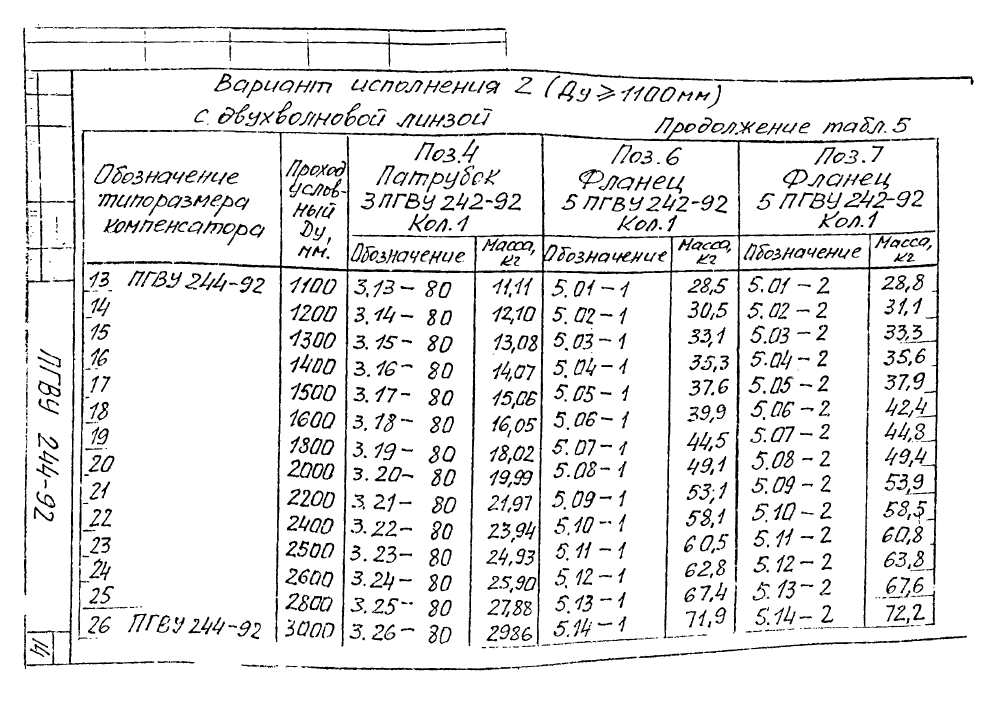 Вариант исполнения 2 (Ду ≥ 1100 мм)
с двухволновой линзой
Продолжение табл. 5
Обозначение типоразмера компенсатора
Проход условный Ду, мм.
Поз. 4
Патрубок
3 ПГВУ 242-92
Кол. 1
Поз. 6
Фланец
5 ПГВУ 242-92
Кол. 1
Поз. 7
Фланец
5 ПГВУ 242-92
Кол. 1
Обозначение Масса, кг Обозначение Масса, кг Обозначение Масса, кг
13 ПГВУ 244-92 1100 3.13 - 80 11,11 5.01 - 1 28,5 5.01 - 2 28,8
14 1200 3.14 - 80 12,10 5.02 - 1 30,5 5.02 - 2 31,1
15 1300 3.15 - 80 13,08 5.03 - 1 33,1 5.03 - 2 33,3
16 1400 3.16 - 80 14,07 5.04 - 1 35,3 5.04 - 2 35,6
17 1500 3.17 - 80 15,06 5.05 - 1 37.6 5.05 - 2 37,9
18 1600 3.18 - 80 16,05 5.06 - 1 39,9 5.06 - 2 42,4
19 1800 3.19 - 80 18,02 5.07 - 1 44,5 5.07 - 2 44,8
20 2000 3.20 - 80 19,99 5.08 - 1 49,1 5.08 - 2 49,4
21 2200 3.21 - 80 21,97 5.09 - 1 53,1 5.09 - 2 53,9
22 2400 3.22 - 80 23,94 5.10 - 1 58,1 5.10 - 2 58,5
23 2500 3.23 - 80 24,93 5.11 - 1 60,5 5.11 - 2 60,8
24 2600 3.24 - 80 25,90 5.12 - 1 62,8 5.12 - 2 63,8
25 2800 3.25 - 80 27,88 5.13 - 1 67,4 5.13 - 2 67,6
26 ПГВУ 244-92 3000 3.26 - 80 2986 5.14 - 1 71,9 5.14 - 2 72,2
ПГВУ 244-92
14